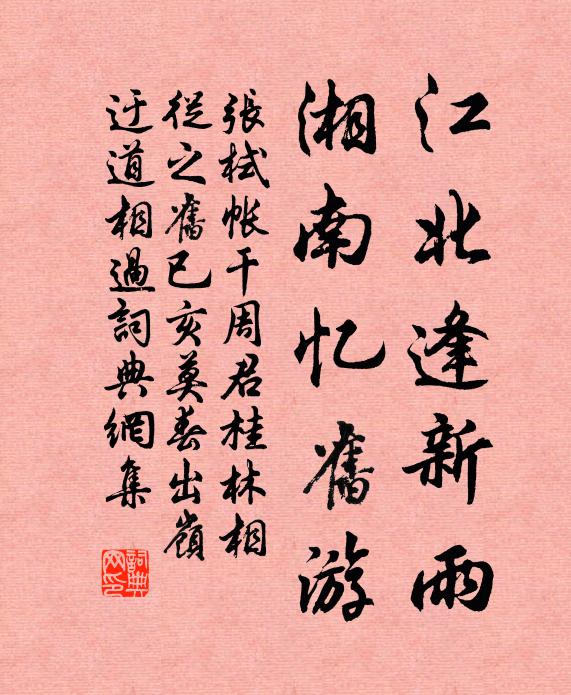 江北逢新雨
湘南忆舊游
張栻帐干周君桂林相
從之舊已亥莫春出嶺
迂道相過詞典網集
詞典网印